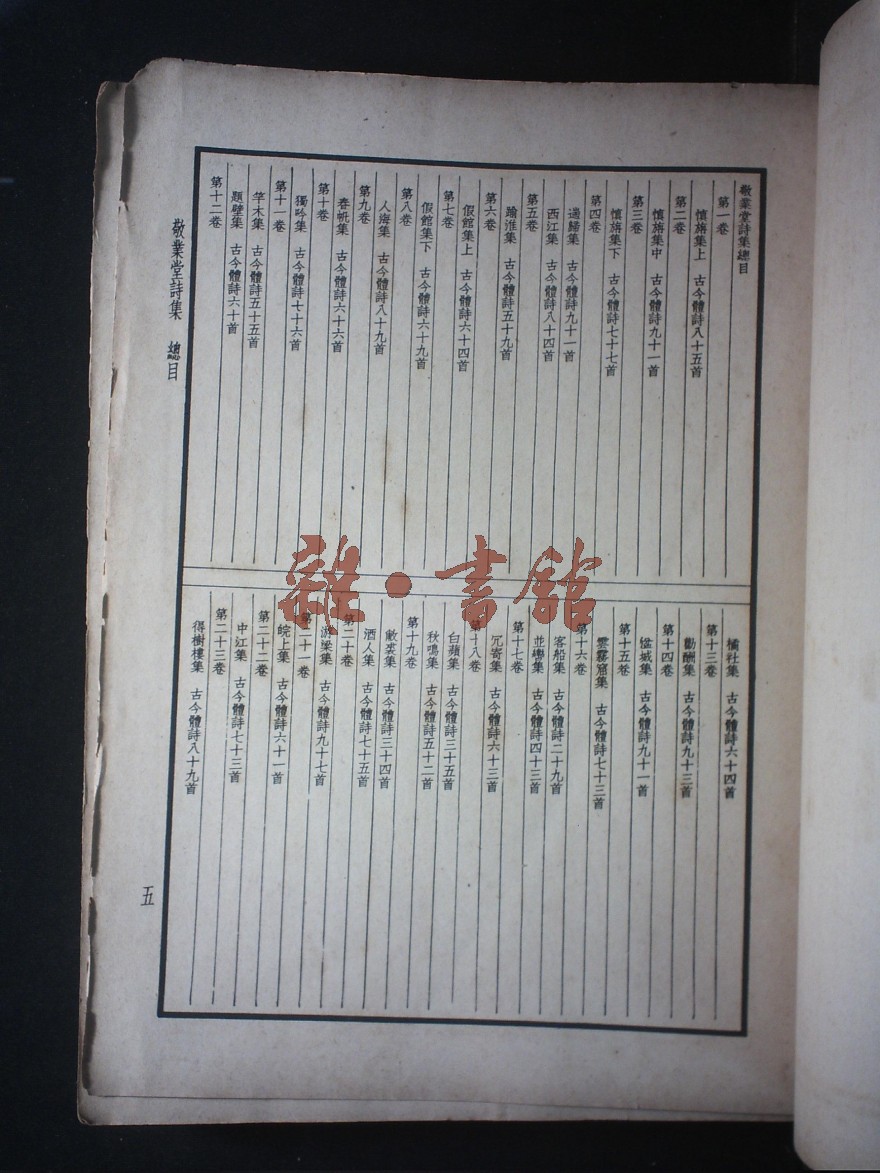 敬業堂詩集總目
第一卷
慎旃集上 古今體詩八十五首
第二卷
慎旃集中 古今體詩九十一首
第三卷
慎旃集下 古今體詩七十七首
第四卷
遄歸集 古今體詩九十一首
西江集 古今體詩八十四首
第五卷
踰淮集 古今體詩五十九首
第六卷
假館集上 古今體詩六十四首
第七卷
假館集下 古今體詩六十九首
第八卷
人海集 古今體詩八十九首
第九卷
春帆集 古今體詩六十六首
第十卷
獨吟集 古今體詩七十六首
第十一卷
竿木集 古今體詩五十五首
題壁集 古今體詩六十首
第十二卷
橘社集 古今體詩六十四首
第十三卷
勸酬集 古今體詩九十三首
第十四卷
溢城集 古今體詩九十一首
第十五卷
雲霧窟集 古今體詩七十三首
第十六卷
客船集 古今體詩二十九首
並轡集 古今體詩四十三首
第十七卷
冗寄集 古今體詩六十三首
第十八卷
白蘋集 古今體詩三十五首
秋鳴集 古今體詩五十二首
第十九卷
敝裘集 古今體詩三十四首
酒人集 古今體詩七十五首
第二十卷
游梁集 古今體詩九十七首
第二十一卷
皖上集 古今體詩六十一首
第二十二卷
中江集 古今體詩七十三首
第二十三卷
得樹樓集 古今體詩八十九首
敬業堂詩集 總目
五
雜·書館